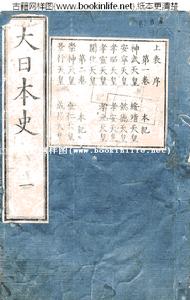 古籍网样图-www.bookinlife.net|纸本更清晰
大日本史
一
上表 序
第一卷 本紀
神武天皇 綏靖天皇
安寧天皇 懿德天皇
孝昭天皇 孝安天皇
孝靈天皇 孝元天皇
開化天皇
第二卷 本紀
崇神天皇 垂仁天皇
景行天皇 成務天皇